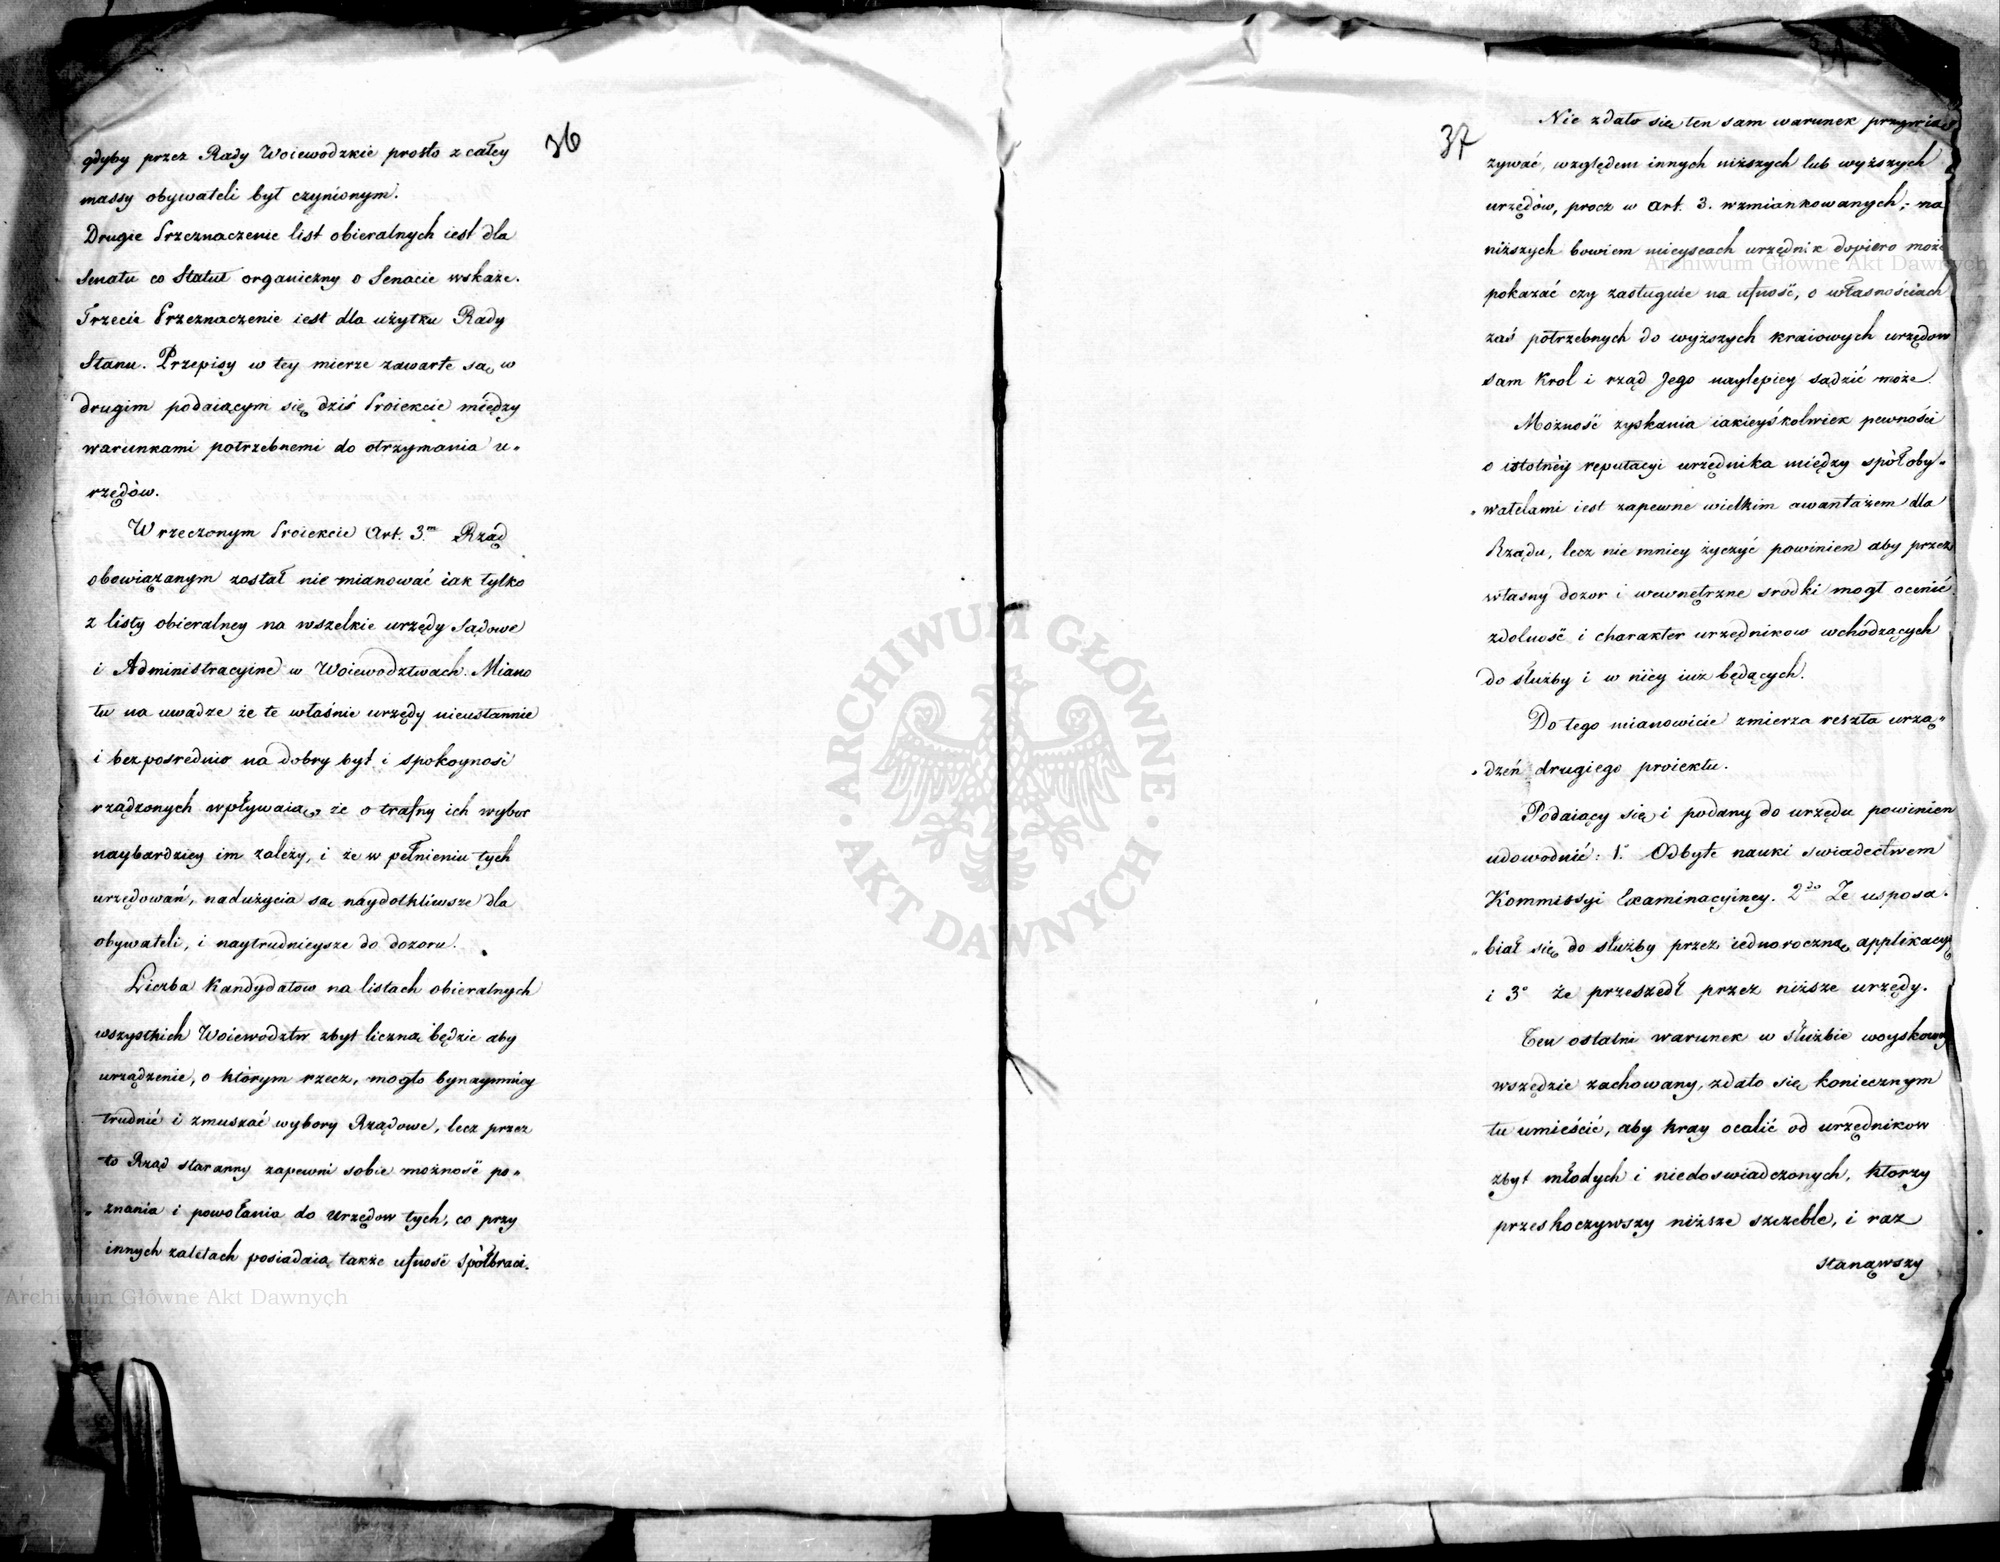 36
gdyby przez Rady Woiewodzkie prosto z całey
massy obywateli był czynionym.
Drugie Przeznaczenie list obieralnych iest dla
Senatu co Statut organiczny o Senacie wskaże.
Trzecie Przeznaczenie iest dla użytku Rady
Stanu. Przepisy w tey mierze zawarte są w
drugim podaiącym się dziś Proiekcie między
warunkami potrzebnemi do otrzymania u„
rzędów.
W rzeczonym Proiekcie Art. 3.m Rząd
obowiązanym został nie mianować iak tylko
z listy obieralney na wszelkie urzędy Sądowe
i Administracyine w Woiewodztwach. Miano
tu na uwadze że te właśnie urzędy nieustannie
i bezposrednio na dobry byt i spokoyność
rządzonych wpływaią, że o trafny ich wybor
naybardziey im zależy, i że w pełnieniu tych
urzędowań, nadużycia są naydotkliwsze dla
obywateli, i naytrudnieysze do dozoru.
Liczba Kandydatow na listach obieralnych
wszystkich Woiewodztw zbyt liczną będzie aby
urządzenie, o którym rzecz, mogło bynaymniey
trudnić i zmuszać wybory Rządowe, lecz przez
to Rząd staranny zapewni sobie możność po„
„znania i powołania do Urzędow tych, co przy
innych zaletach posiadaią także ufność Spółbraci.
37
Nie zdało się ten sam warunek przywią
zywać, względem innych niższych lub wyższych
urzędów, procz w Art. 3. wzmiankowanych; na
niższych bowiem mieyscach urzędnik dopiero może
pokazać czy zasługuie na ufność, o własnościach
zaś potrzebnych do wyższych kraiowych urzędow
sam Krol i rząd Jego naylepiey sądzić może.
Możność zyskania iakieyśkolwiek pewności
o istotnéy reputacyi urzędnika między spółoby„
„watelami iest zapewne wielkim awantażem dla
Rządu, lecz nie mniey życzyć powinien aby przez
własny dozor i wewnętrzne srodki mogł ocenić
zdolność i charakter urzędnikow wchodzących
do służby i w niey iuż będących.
Do tego mianowicie zmierza reszta urzą„
„dzeń drugiego proiektu.
Podaiący się i podany do urzędu powinien
udowodnić: 1.° Odbyte nauki swiadectwem
Kommissyi Examinacyiney. 2do Że usposa„
„biał się do służby przez iednoroczną applikacyą
i 3° że przeszedł przez niższe urzędy.
Ten ostatni warunek w służbie woyskowey
wszędzie zachowany, zdało się koniecznym
tu umieścić, aby kray ocalić od urzędnikow
zbyt młodych i niedoswiadczonych, ktorzy
przeskoczywszy niższe szczeble, i raz
stanąwszy
Archiwum Główne Akt Dawnych
Archiwum Główne Akt Dawnych
ARCHIWUM GŁÓWNE
AKT DAWNYCH